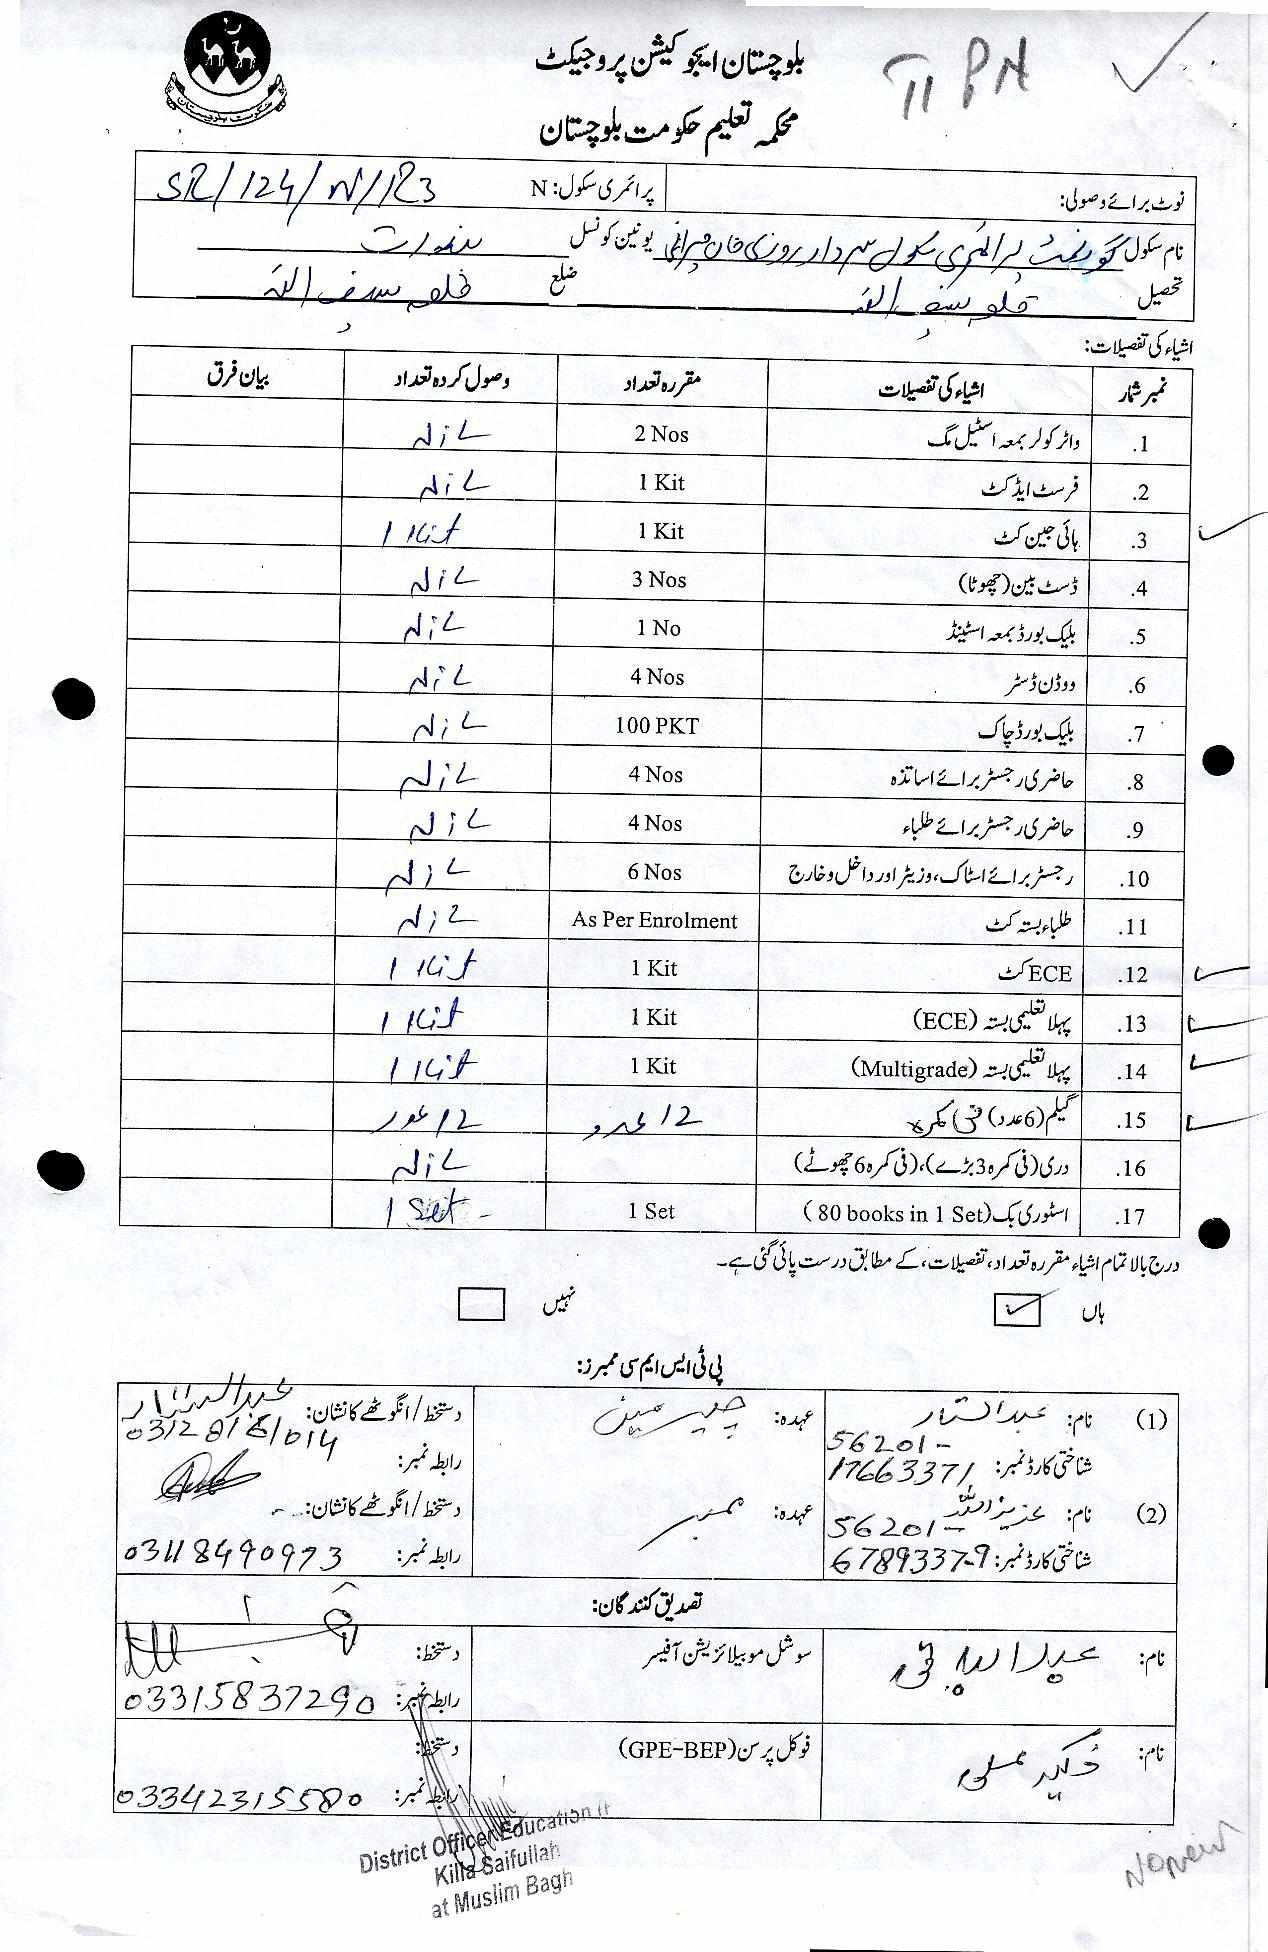 حکومت بلوچستان
بلوچستان ایجوکیشن پروجیکٹ
محکمہ تعلیم حکومت بلوچستان
نوٹ برائے وصولی: پرائمری سکول: N SR/124/N/IR3
نام سکول گورنمنٹ پرائمری سکول سردار روزی خان یونین کونسل
تحصیل قلعہ سیف اللہ ضلع قلعہ سیف اللہ
اشیاء کی تفصیلات:
نمبر شمار اشیاء کی تفصیلات مقررہ تعداد وصول کردہ تعداد بیان فرق
1. واٹر کولر بمعہ اسٹیل مگ 2 Nos Nil
2. فرسٹ ایڈ کٹ 1 Kit Nil
3. ہائی جین کٹ 1 Kit 1 Kit
4. ڈسٹ بین (چھوٹا) 3 Nos Nil
5. بلیک بورڈ بمعہ اسٹینڈ 1 No Nil
6. ووڈن ڈسٹر 4 Nos Nil
7. بلیک بورڈ چاک 100 PKT Nil
8. حاضری رجسٹر برائے اساتذہ 4 Nos Nil
9. حاضری رجسٹر برائے طلباء 4 Nos Nil
10. رجسٹر برائے اسٹاک، وزیٹر اور داخل و خارج 6 Nos Nil
11. طلباء بستہ کٹ As Per Enrolment Nil
12. ECE کٹ 1 Kit 1 Kit
13. پہلا تعلیمی بستہ (ECE) 1 Kit 1 Kit
14. پہلا تعلیمی بستہ (Multigrade) 1 Kit 1 Kit
15. گیلم (6 عدد) فی کمرہ 12 عدد 12 عدد
16. دری (فی کمرہ 3 بڑے)، (فی کمرہ 6 چھوٹے) Nil
17. اسٹوری بک (80 books in 1 Set) 1 Set 1 Set
درج بالا تمام اشیاء مقررہ تعداد، تفصیلات، کے مطابق درست پائی گئی ہے۔
ہاں ✓ نہیں
پی ٹی ایس ایم سی ممبرز:
(1) نام: عبدالستار عہدہ: چیئرمین دستخط/انگوٹھے کا نشان: عبدالستار
شناختی کارڈ نمبر: 56201-17663371 رابطہ نمبر: 03128161014
(2) نام: عزیزاللہ عہدہ: ممبر دستخط/انگوٹھے کا نشان:
شناختی کارڈ نمبر: 56201-6789337-9 رابطہ نمبر: 03118490973
تصدیق کنندگان:
نام: سوشل موبیلائزیشن آفیسر دستخط:
رابطہ نمبر: 03315837290
نام: فوکل پرسن (GPE-BEP) دستخط:
رابطہ نمبر: 03342315580
District Officer Education
Killa Saifullah
at Muslim Bagh